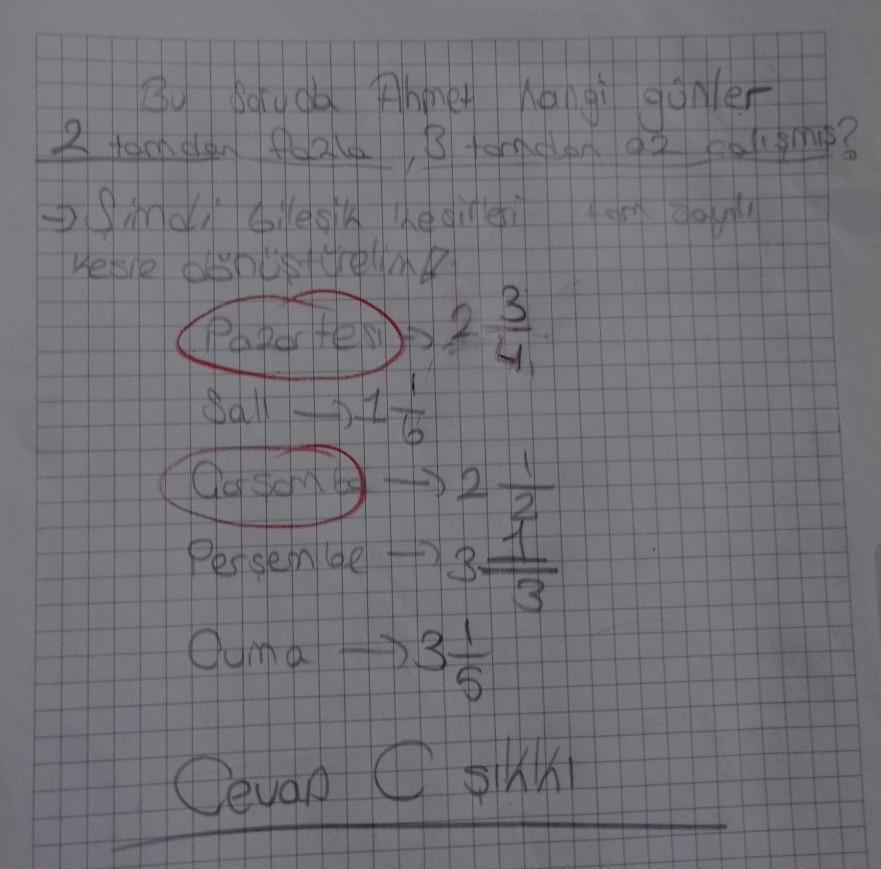 Bu Soruda Ahmet hangi günler
2 tamdan fazla, 3 tamdan az çalışmış?
→ Şimdi bileşik kesirleri tam sayılı
kesre dönüştürelim
Pazartesi → 2 3/4
Salı → 1 1/6
Çarşamba → 2 1/2
Perşembe → 3 1/3
Cuma → 3 1/5
Cevap C şıkkı